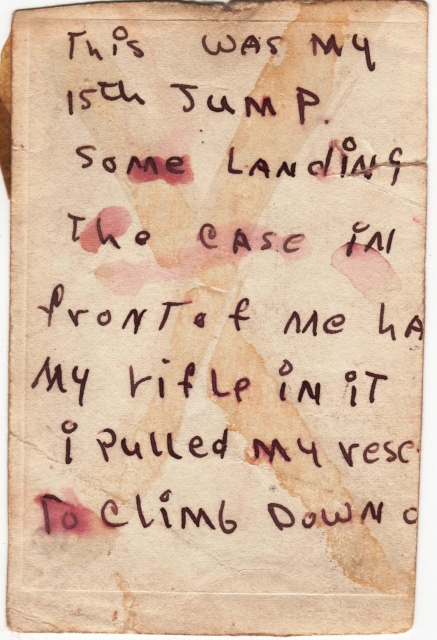 This WAS MY
15th JUMP.
Some LANdiNG
The CASE iN
froNT of Me hA
My rifle iN iT
i Pulled My resc
To CLiMb DowN o